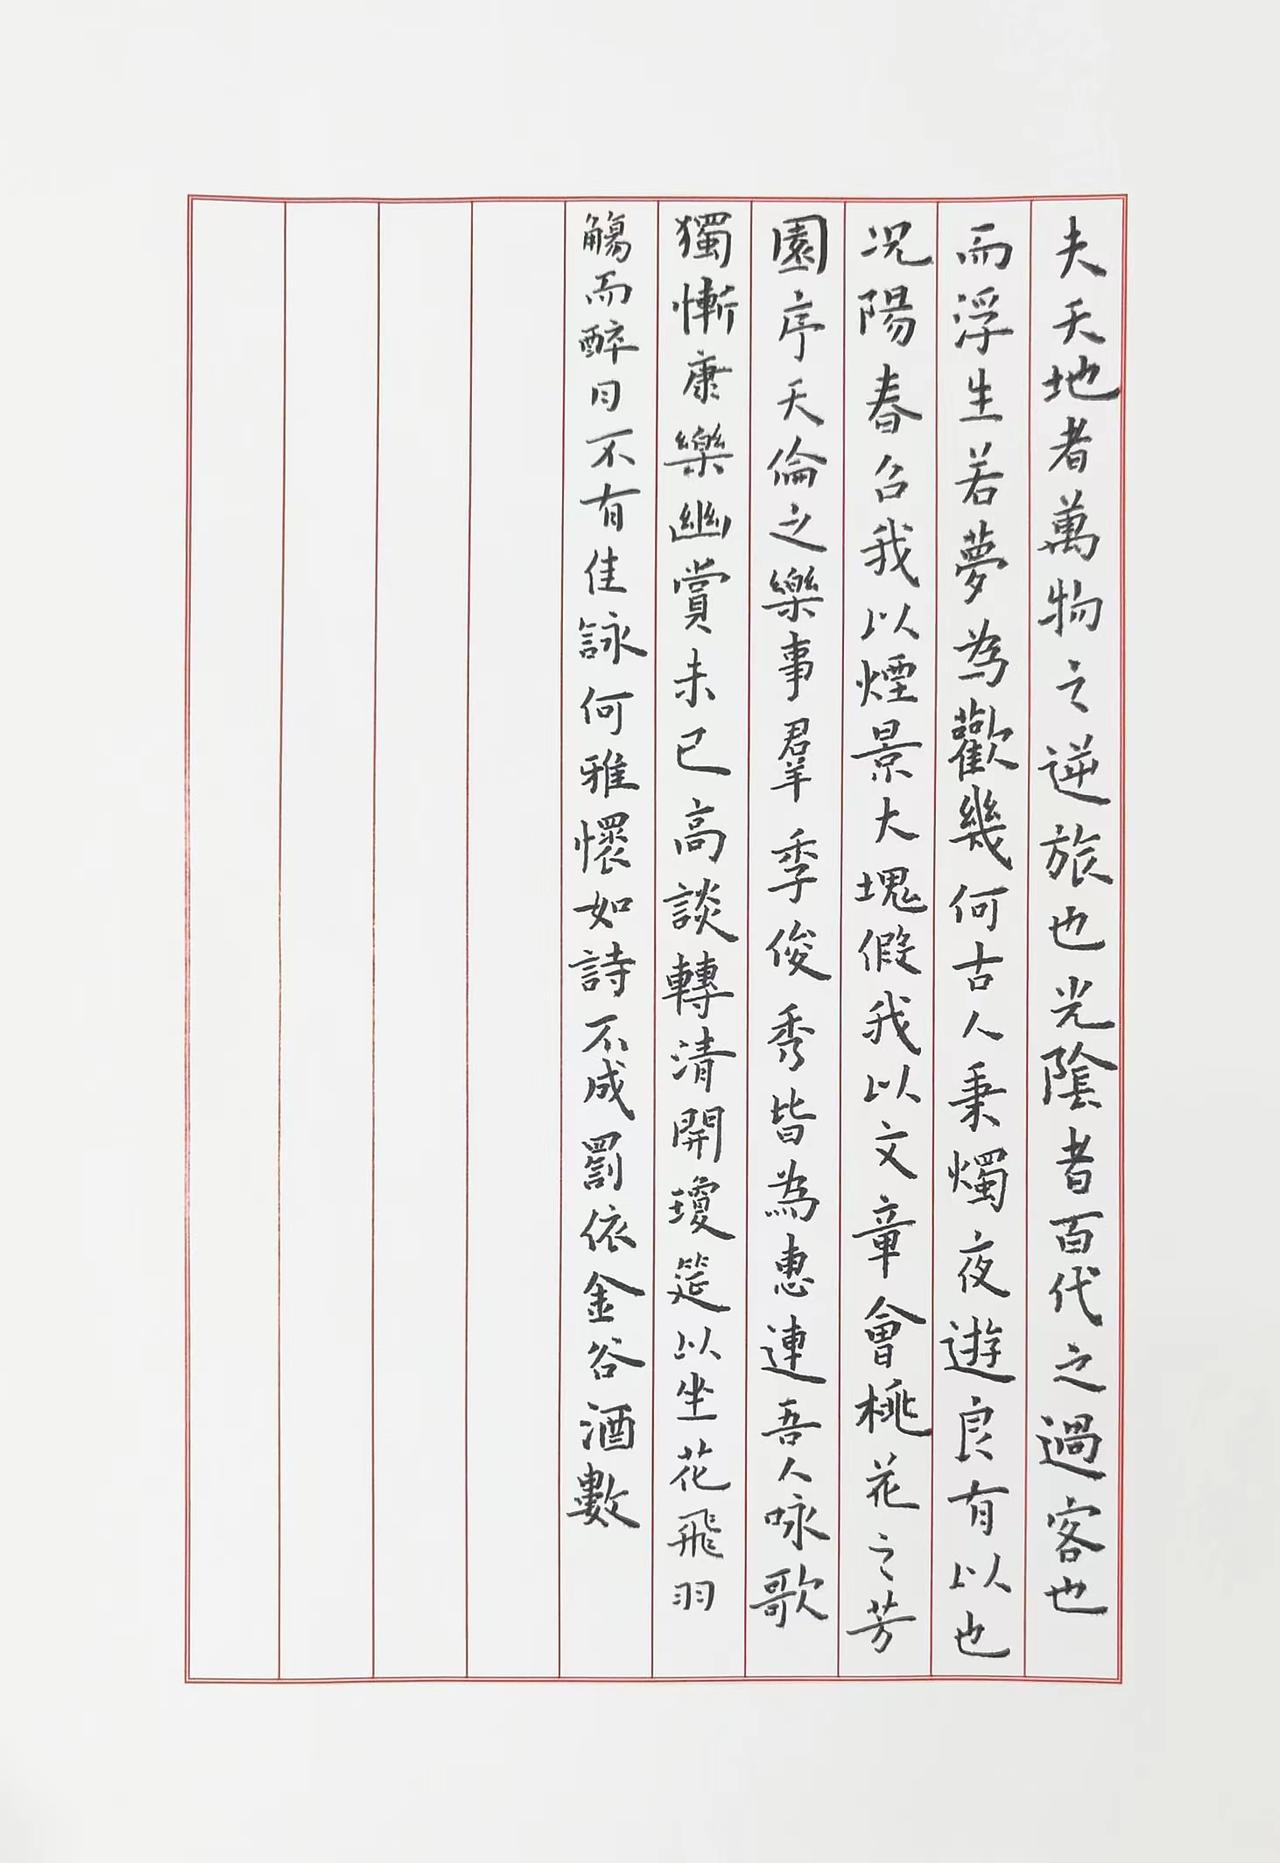 夫天地者萬物之逆旅也光陰者百代之過客也
而浮生若夢為歡幾何古人秉燭夜遊良有以也
况陽春召我以煙景大塊假我以文章會桃花之芳
園序天倫之樂事羣季俊秀皆為惠連吾人咏歌
獨慚康樂幽賞未已高談轉清開瓊筵以坐花飛羽
觴而醉月不有佳詠何雅懷如詩不成罰依金谷酒數